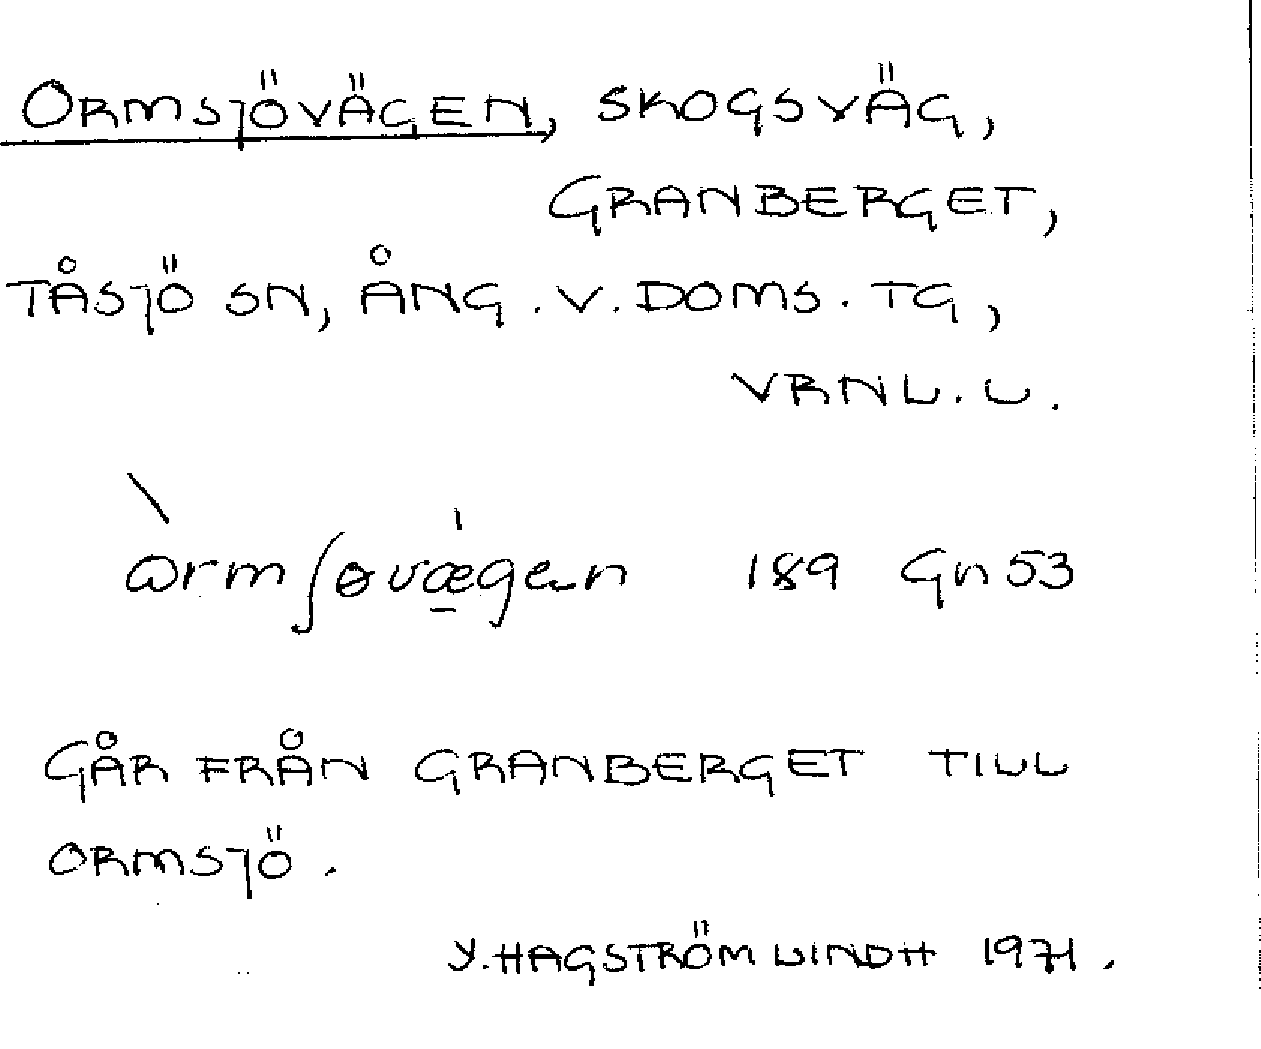 ORMSJÖVÄGEN, SKOGSVÄG,
GRANBERGET,
TÅSJÖ SN, ÅNG. V. DOMS. TG,
VRNL. L.
ὰrmʃɵvǽgen 189 Gn 53
GÅR FRÅN GRANBERGET TILL
ORMSJÖ.
Y. HAGSTRÖM LINDH 1971.